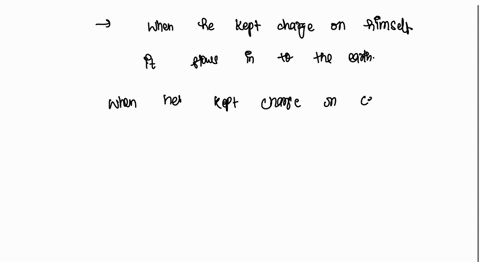 → When he kept charge on himself
it flows in to the earth.
When he kept charge on c